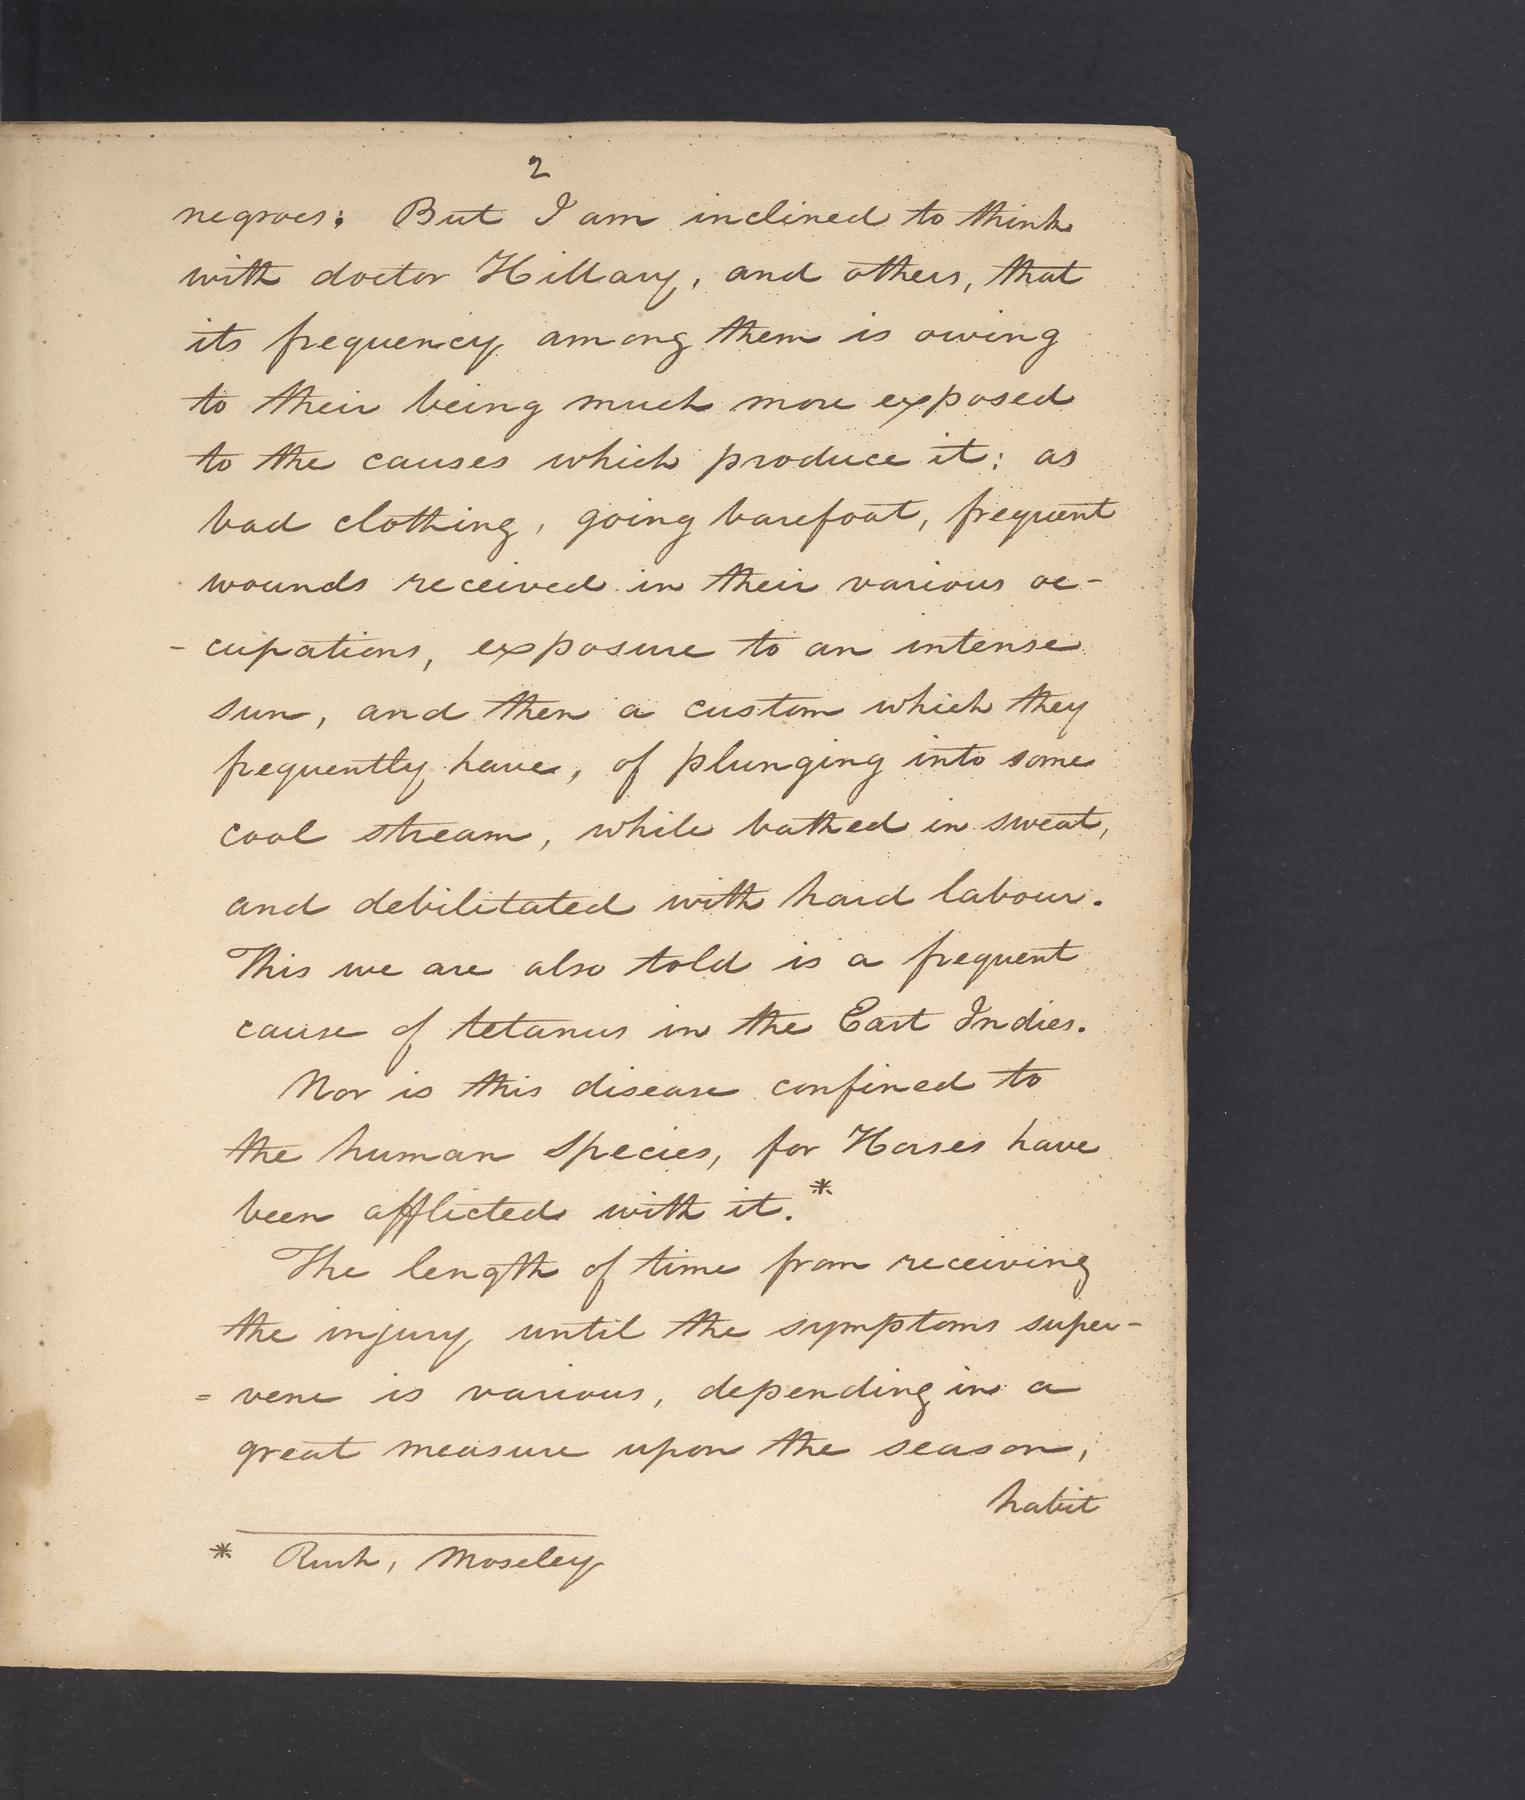 2
negroes: But I am inclined to think
with doctor Hillary, and others, that
its frequency among them is owing
to their being much more exposed
to the causes which produce it: as
bad clothing, going barefoot, frequent
wounds received in their various oc-
- cupations, exposure to an intense
sun, and then a custom which they
frequently have, of plunging into some
cool stream, while bathed in sweat,
and debilitated with hard labour.
This we are also told is a frequent
cause of tetanus in the East Indies.
Nor is this disease confined to
the human species, for Horses have
been afflicted with it.*
The length of time from receiving
the injury until the symptoms super-
= vene is various, depending in a
great measure upon the season,
habit
* Rush, Moseley